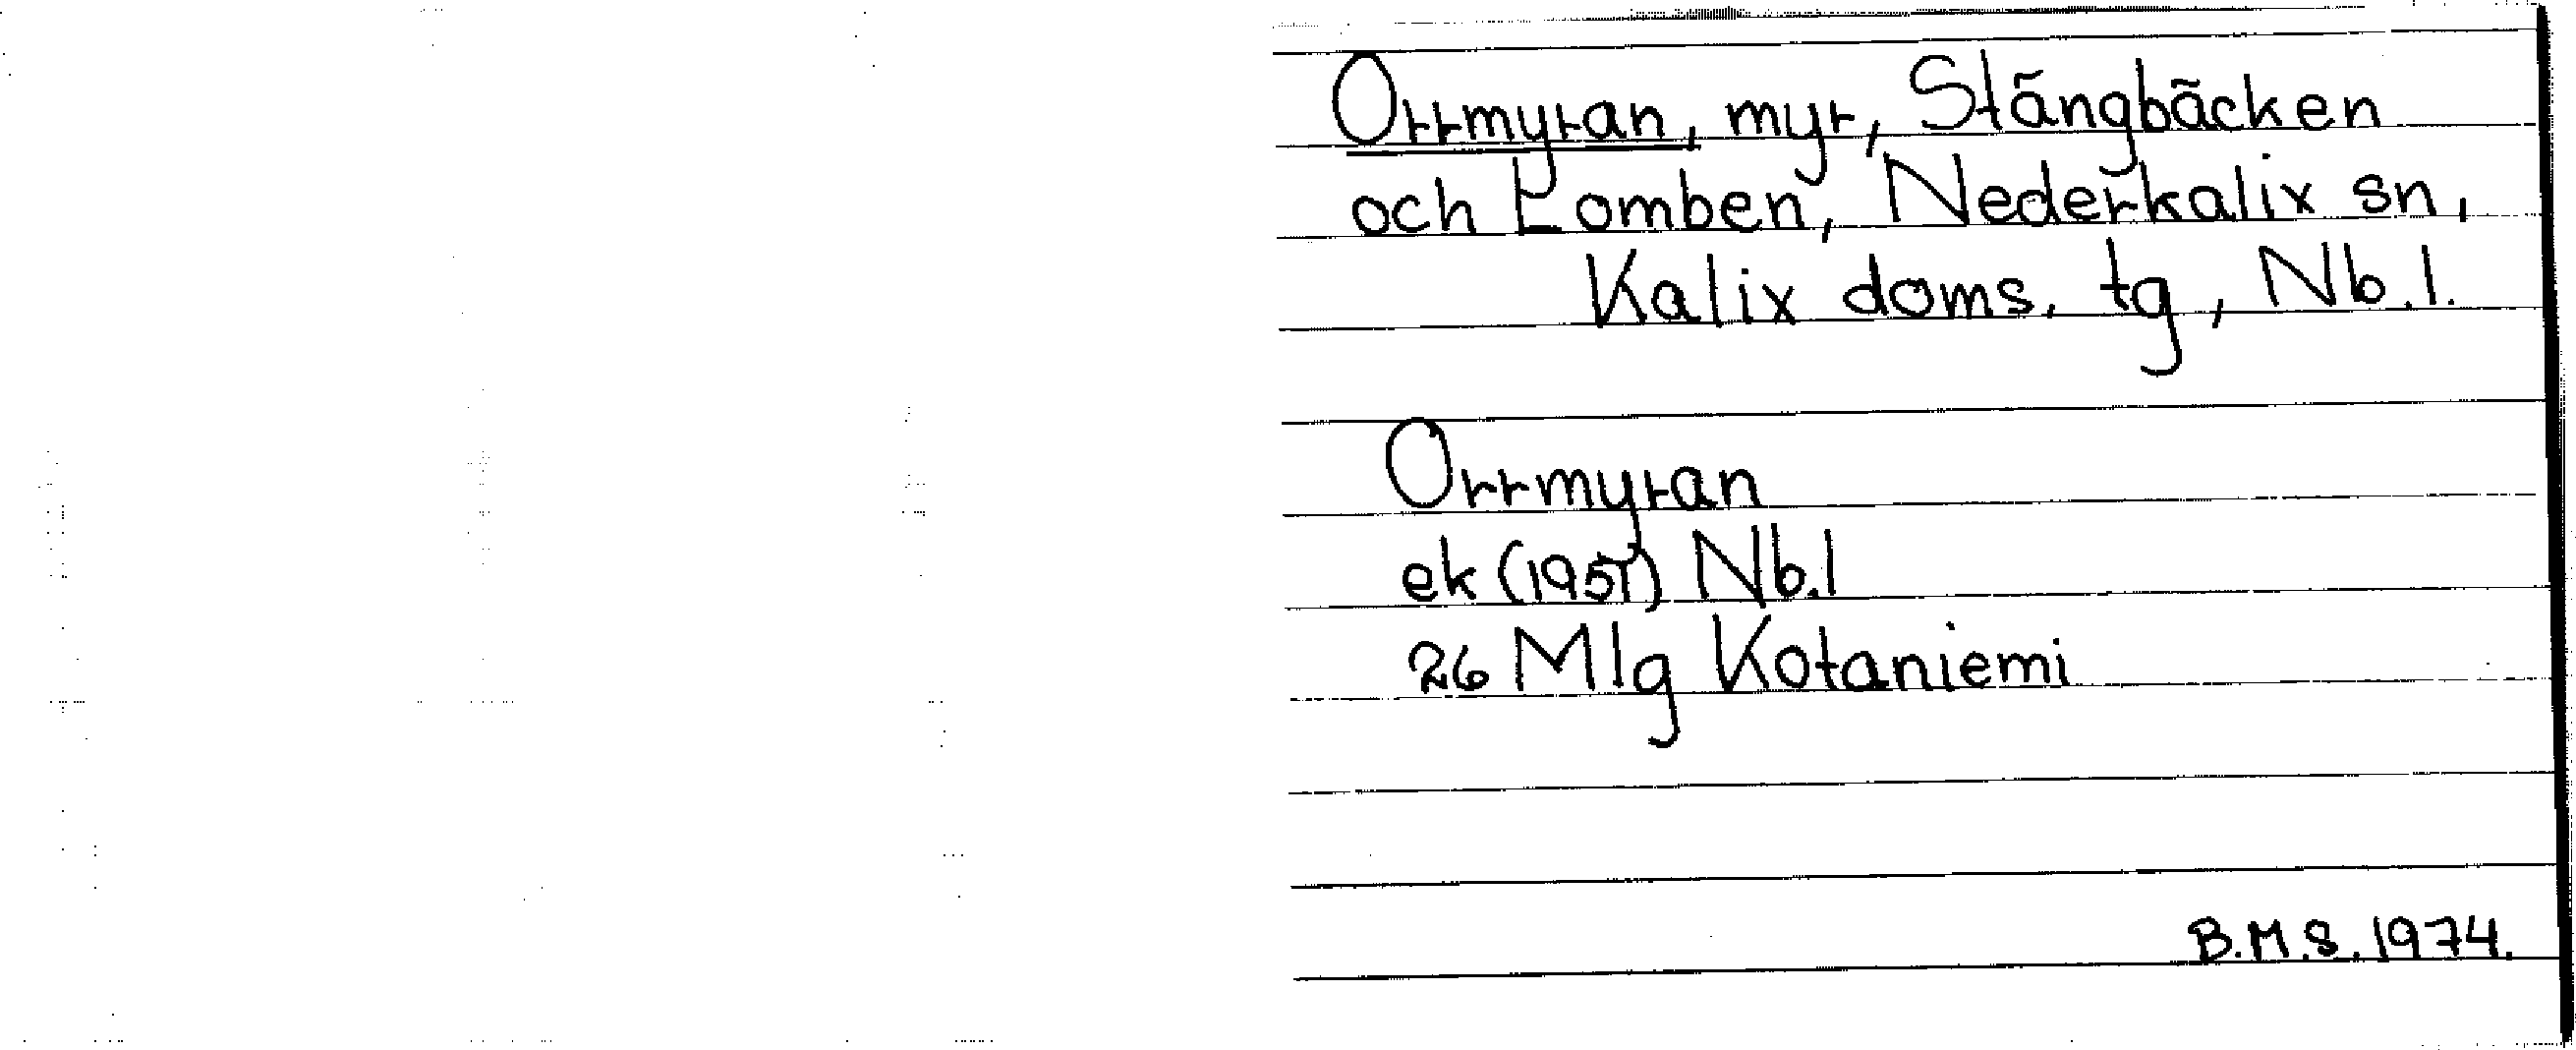 Orrmyran, myr, Stängbäcken
och Lomben, Nederkalix sn,
Kalix doms. tg, Nb.l.
Orrmyran
ek (1951) Nb.l
26 Mlg Kotaniemi
B.M.S. 1974.